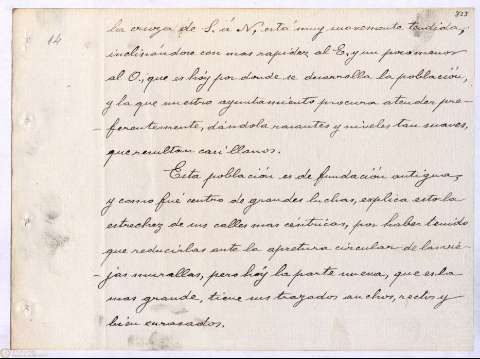 14
723
la cruza de S. á N. está muy suavemente tendida,
inclinándose con mas rapidez al E, y un poco menor
al O., que es hoy por donde se desarrolla la población,
y la que nuestro ayuntamiento procura atender pre-
ferentemente, dándola rasantes y niveles tan suaves,
que resultan casi llanos.
Esta población es de fundación antigua,
y como fué centro de grandes luchas, explica esto la
estrechez de sus calles mas céntricas, por haber tenido
que reducirlas ante la apretura circular de las vie-
jas murallas, pero hoy la parte nueva, que es la
mas grande, tiene sus trazados anchos, rectos y
bien enrasados.